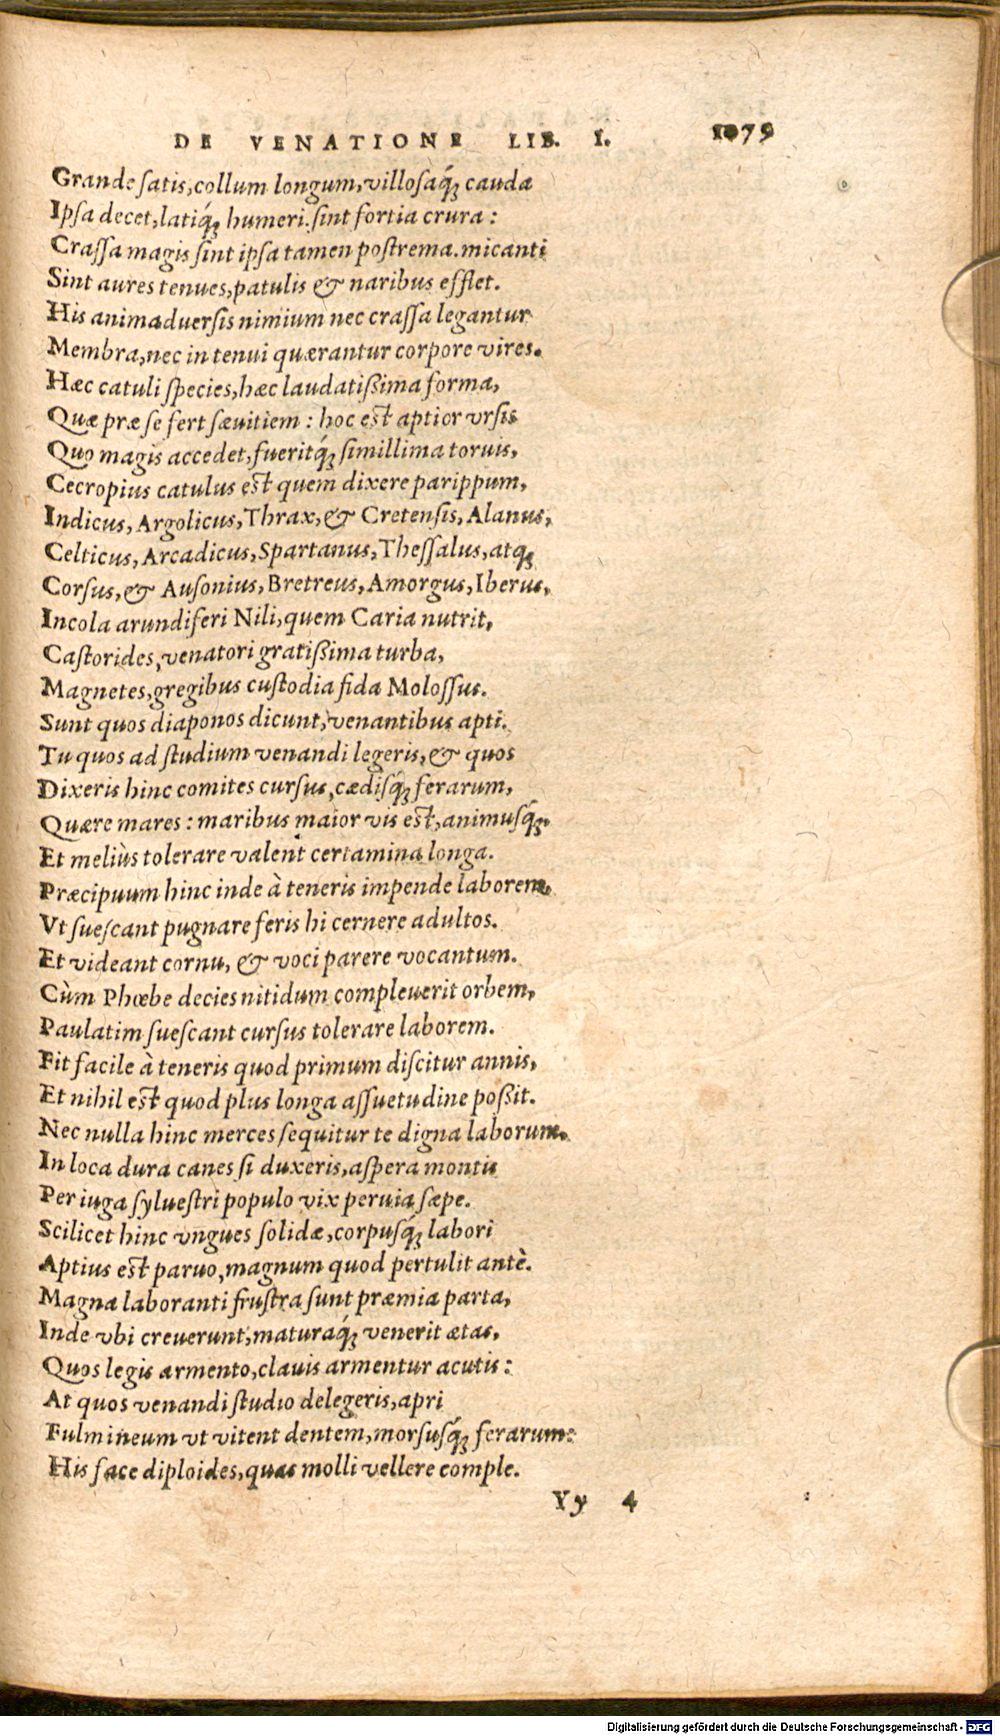 DE VENATIONE LIB. I. 1079
Grande satis, collum longum, villosaq́; cauda
Ipsa decet, latiq́; humeri. sint fortia crura:
Crassa magis sint ipsa tamen postrema. micanti
Sint aures tenues, patulis & naribus efflet.
His animaduersis nimium nec crassa legantur
Membra, nec in tenui quærantur corpore vires.
Hæc catuli species, hæc laudatißima forma,
Quæ præ se fert sæuitiem: hoc est aptior vrsis
Quo magis accedet, fueritq́; simillima toruis,
Cecropius catulus est quem dixere parippum,
Indicus, Argolicus, Thrax, & Cretensis, Alanus,
Celticus, Arcadicus, Spartanus, Thessalus, atq;
Corsus, & Ausonius, Bretreus, Amorgus, Iberus,
Incola arundiferi Nili, quem Caria nutrit,
Castorides, venatori gratißima turba,
Magnetes, gregibus custodia fida Molossus.
Sunt quos diaponos dicunt, venantibus apti.
Tu quos ad studium venandi legeris, & quos
Dixeris hinc comites cursus, cædisq́; ferarum,
Quære mares: maribus maior vis est, animusq́;,
Et meliùs tolerare valent certamina longa.
Præcipuum hinc inde à teneris impende laborem,
Vt suescant pugnare feris hi cernere adultos.
Et videant cornu, & voci parere vocantum.
Cùm Phœbe decies nitidum compleuerit orbem,
Paulatim suescant cursus tolerare laborem.
Fit facile à teneris quod primum discitur annis,
Et nihil est quod plus longa assuetudine poßit.
Nec nulla hinc merces sequitur te digna laborum.
In loca dura canes si duxeris, aspera montis
Per iuga syluestri populo vix peruia sæpe.
Scilicet hinc vngues solidæ, corpusq́; labori
Aptius est paruo, magnum quod pertulit antè.
Magna laboranti frustra sunt præmia parta,
Inde vbi creuerunt, maturaq́; venerit ætas,
Quos legis armento, clauis armentur acutis:
At quos venandi studio delegeris, apri
Fulmineum vt vitent dentem, morsusq́; ferarum:
His face diploides, quas molli vellere comple.
Yy 4
Digitalisierung gefördert durch die Deutsche Forschungsgemeinschaft - DFG